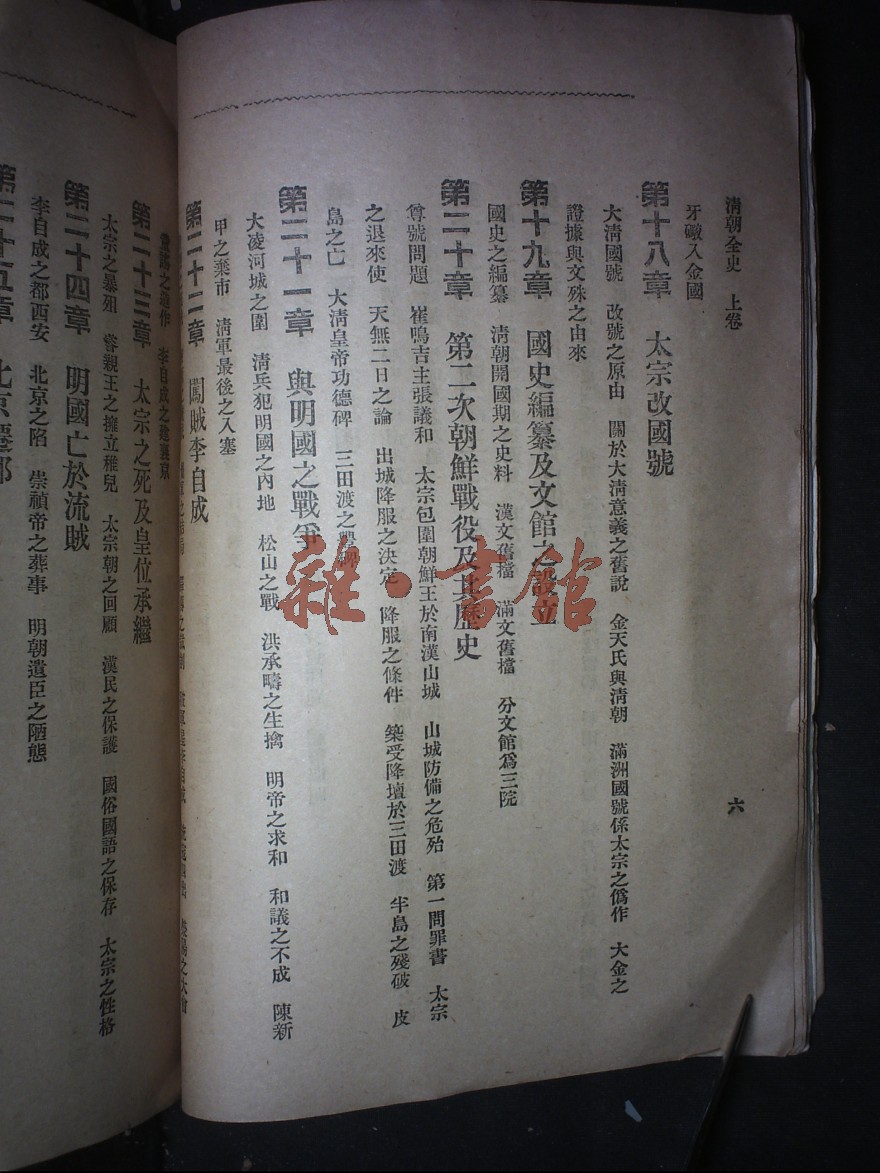 清朝全史 上卷
六
牙礮入金國
第十八章 太宗改國號
大清國號 改號之原由 關於大清意義之舊說 金天氏與清朝 滿洲國號係太宗之僞作 大金之
證據與文殊之由來
第十九章 國史編纂及文館之設立
國史之編纂 清朝開國期之史料 漢文舊檔 滿文舊檔 分文館爲三院
第二十章 第二次朝鮮戰役及其歷史
尊號問題 崔鳴吉主張議和 太宗包圍朝鮮王於南漢山城 山城防備之危殆 第一問罪書 太宗
之退來使 天無二日之論 出城降服之決定 降服之條件 築受降壇於三田渡 半島之殘破 皮
島之亡 大清皇帝功德碑 三田渡之
第二十一章 與明國之戰爭
大凌河城之圍 清兵犯明國之內地 松山之戰 洪承疇之生擒 明帝之求和 和議之不成 陳新
甲之棄市 清軍最後之入塞
第二十二章 闖賊李自成
李自成之建襄京
第二十三章 太宗之死及皇位承繼
太宗之暴殂 睿親王之擁立稚兒 太宗朝之回顧 漢民之保護 國俗國語之保存 太宗之性格
第二十四章 明國亡於流賊
李自成之都西安 北京之陷 崇禎帝之葬事 明朝遺臣之陋態
第二十五章 北京遷都
雜·書館